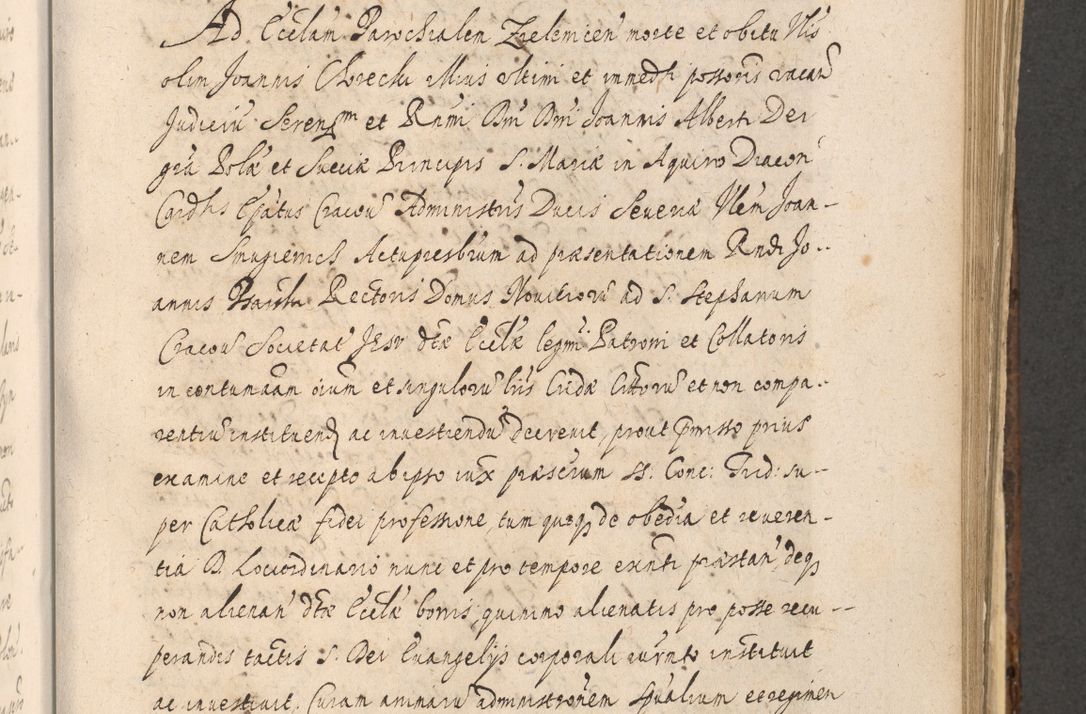 Ad Ecclam Parochialem Zielemicen̄ morte et obitu Nlis
olim Joannis Chorecki illius ultimi et immedti possoris vacan̄
Judiciū Serenssmi et Rndmi Dni Dni Joannis Alberti Dei
gra Polæ et Sueciæ Principis S. Mariæ in Aquiro Diacon̄
Cardlis Epātus Cracou Administris Ducis Seueriæ Nlem Joan-
nem Artupresbium ad præsentationem Rndi Jo-
annis Rectoris Domus Nouitiorū ad S. Stephanum
Cracou Societat̄ Jesu dtæ Ecclæ legmi Patroni et Collatoris
in contumaām oium et singulorū liis Cridæ Citorū et non compa-
rentiū instituend ac inuestiendū decreuit, prout pmisso prius
examine et recepto ab ipso iux præscrum SS. Conc: Trid: su-
per Catholicæ fidei professione tum quoq de obedia et reueren-
tia D. Lociordinario nunc et pro tempore exnti præstan̄ deq
non alienan̄ dtæ Ecclæ bonis, quinimo alienatis pro posse recu-
perandis tactis S. Dei Euangelijs corporali iurnto instituit
ac inuestiuit, Curam animarū administronem spualium et regimen